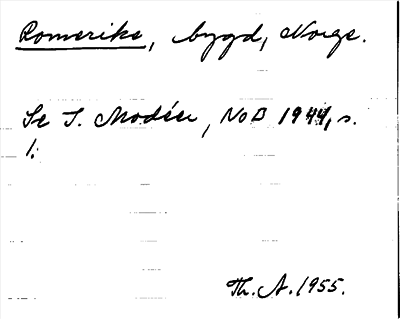 Romerike, bygd, Norge.
Se I. Modéer, NoB 1944, s.
1.
Th. A. 1955.